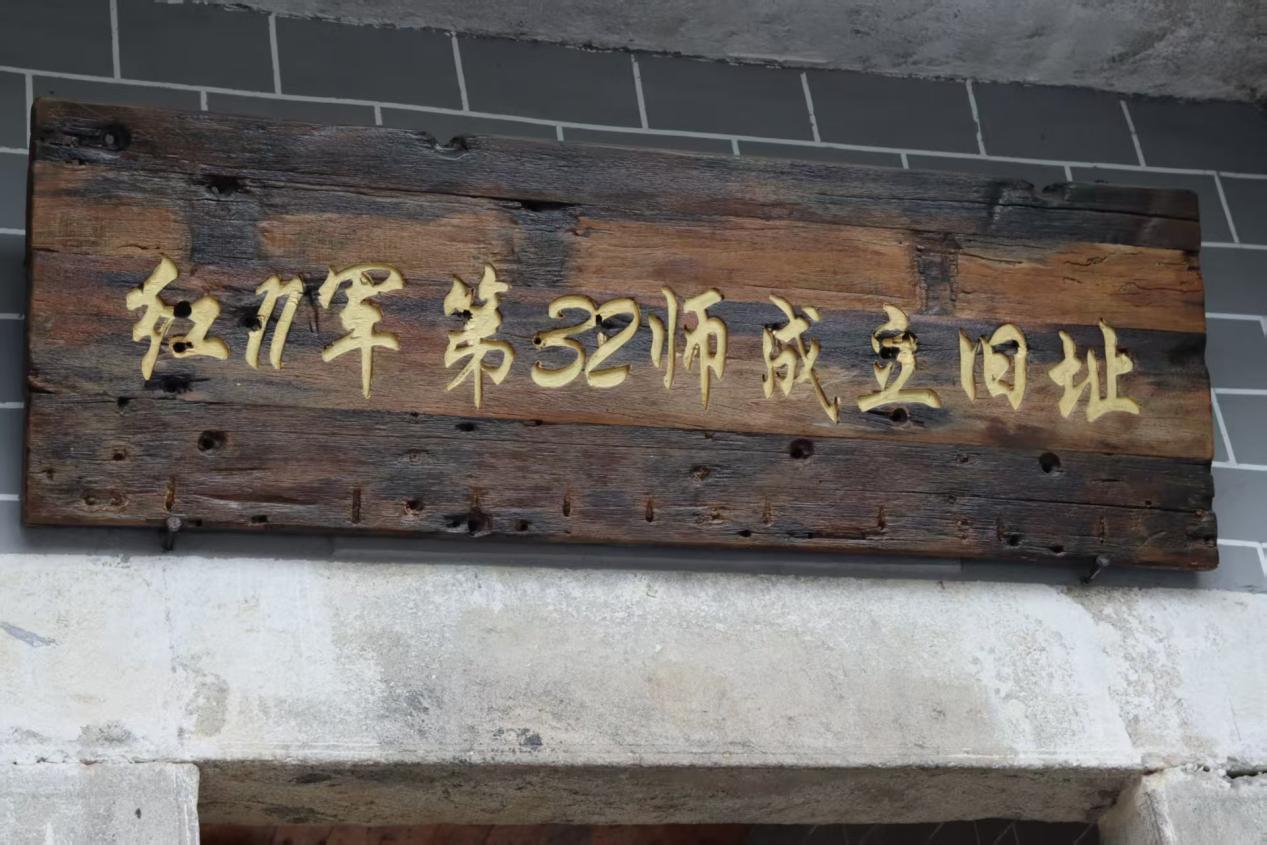 红11军第32师成立旧址